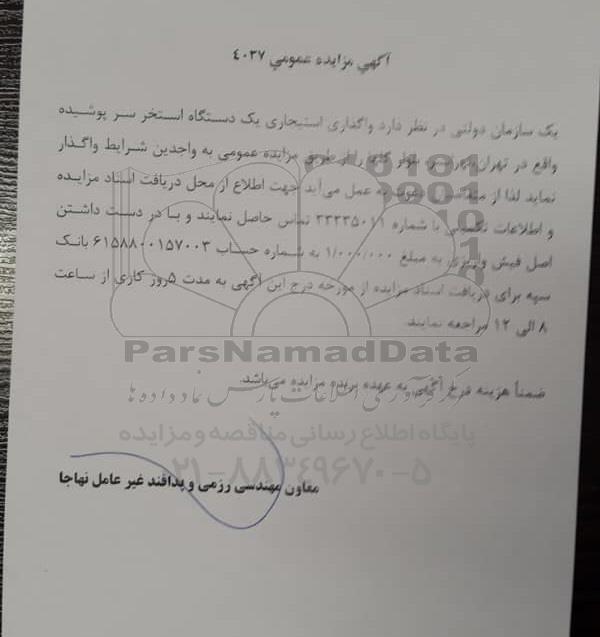 آگهي مزايده عمومي ٤٠٣٧
یک سازمان دولتی در نظر دارد واگذاری استیجاری یک دستگاه استخر سر پوشیده
واقع در تهران را از طریق مزایده عمومی به واجدین شرایط واگذار
نماید لذا از دعوت به عمل می‌آید جهت اطلاع از محل دریافت اسناد مزایده
و اطلاعات تکمیلی با شماره ۳۳۳۳۵۰۱۱ تماس حاصل نمایند و با در دست داشتن
اصل فیش واریزی به مبلغ ۱/۰۰۰/۰۰۰ به شماره حساب ۶۱۵۸۸۰۰۱۵۷۰۰۳ بانک
سپه برای دریافت اسناد مزایده از مورخه درج این آگهی به مدت ۵روز کاری از ساعت
۸ الی ۱۲ مراجعه نمایند.
ParsNamadData
ضمناً هزینه درج آگهی به عهده برنده مزایده می‌باشد.
پایگاه اطلاع رسانی مناقصه و مزایده
۰۲۱-۸۸۳۴۹۶۷۰-۵
معاون مهندسی رزمی و پدافند غیر عامل نهاجا